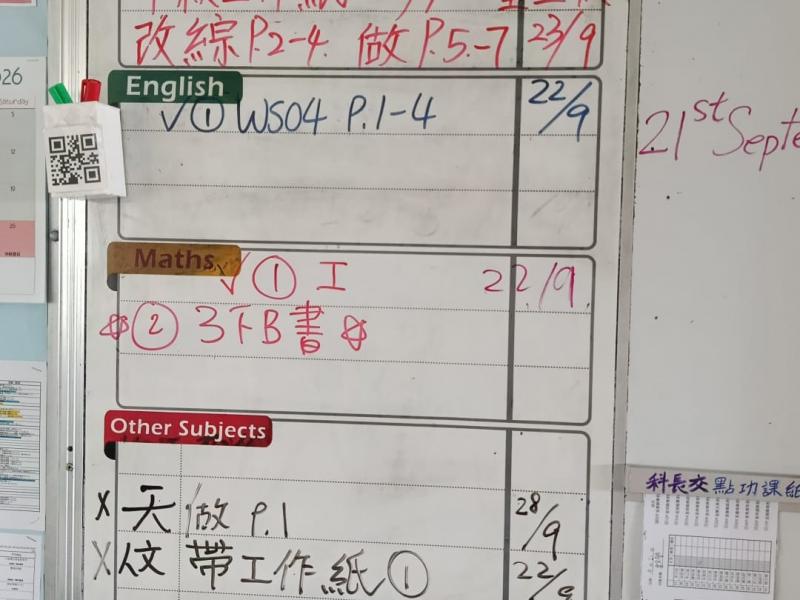 改綜P.2-4. 做P.5-7 23/9
English
✓① WS04 P.1-4 22/9
Maths
✓① 工 22/9.
② 3下B書
Other Subjects
x 天 做 P.1 28/9
x 人文 帶工作紙① 22/9
026
Saturday
5
12
19
21st Septe
科長交點功課紙